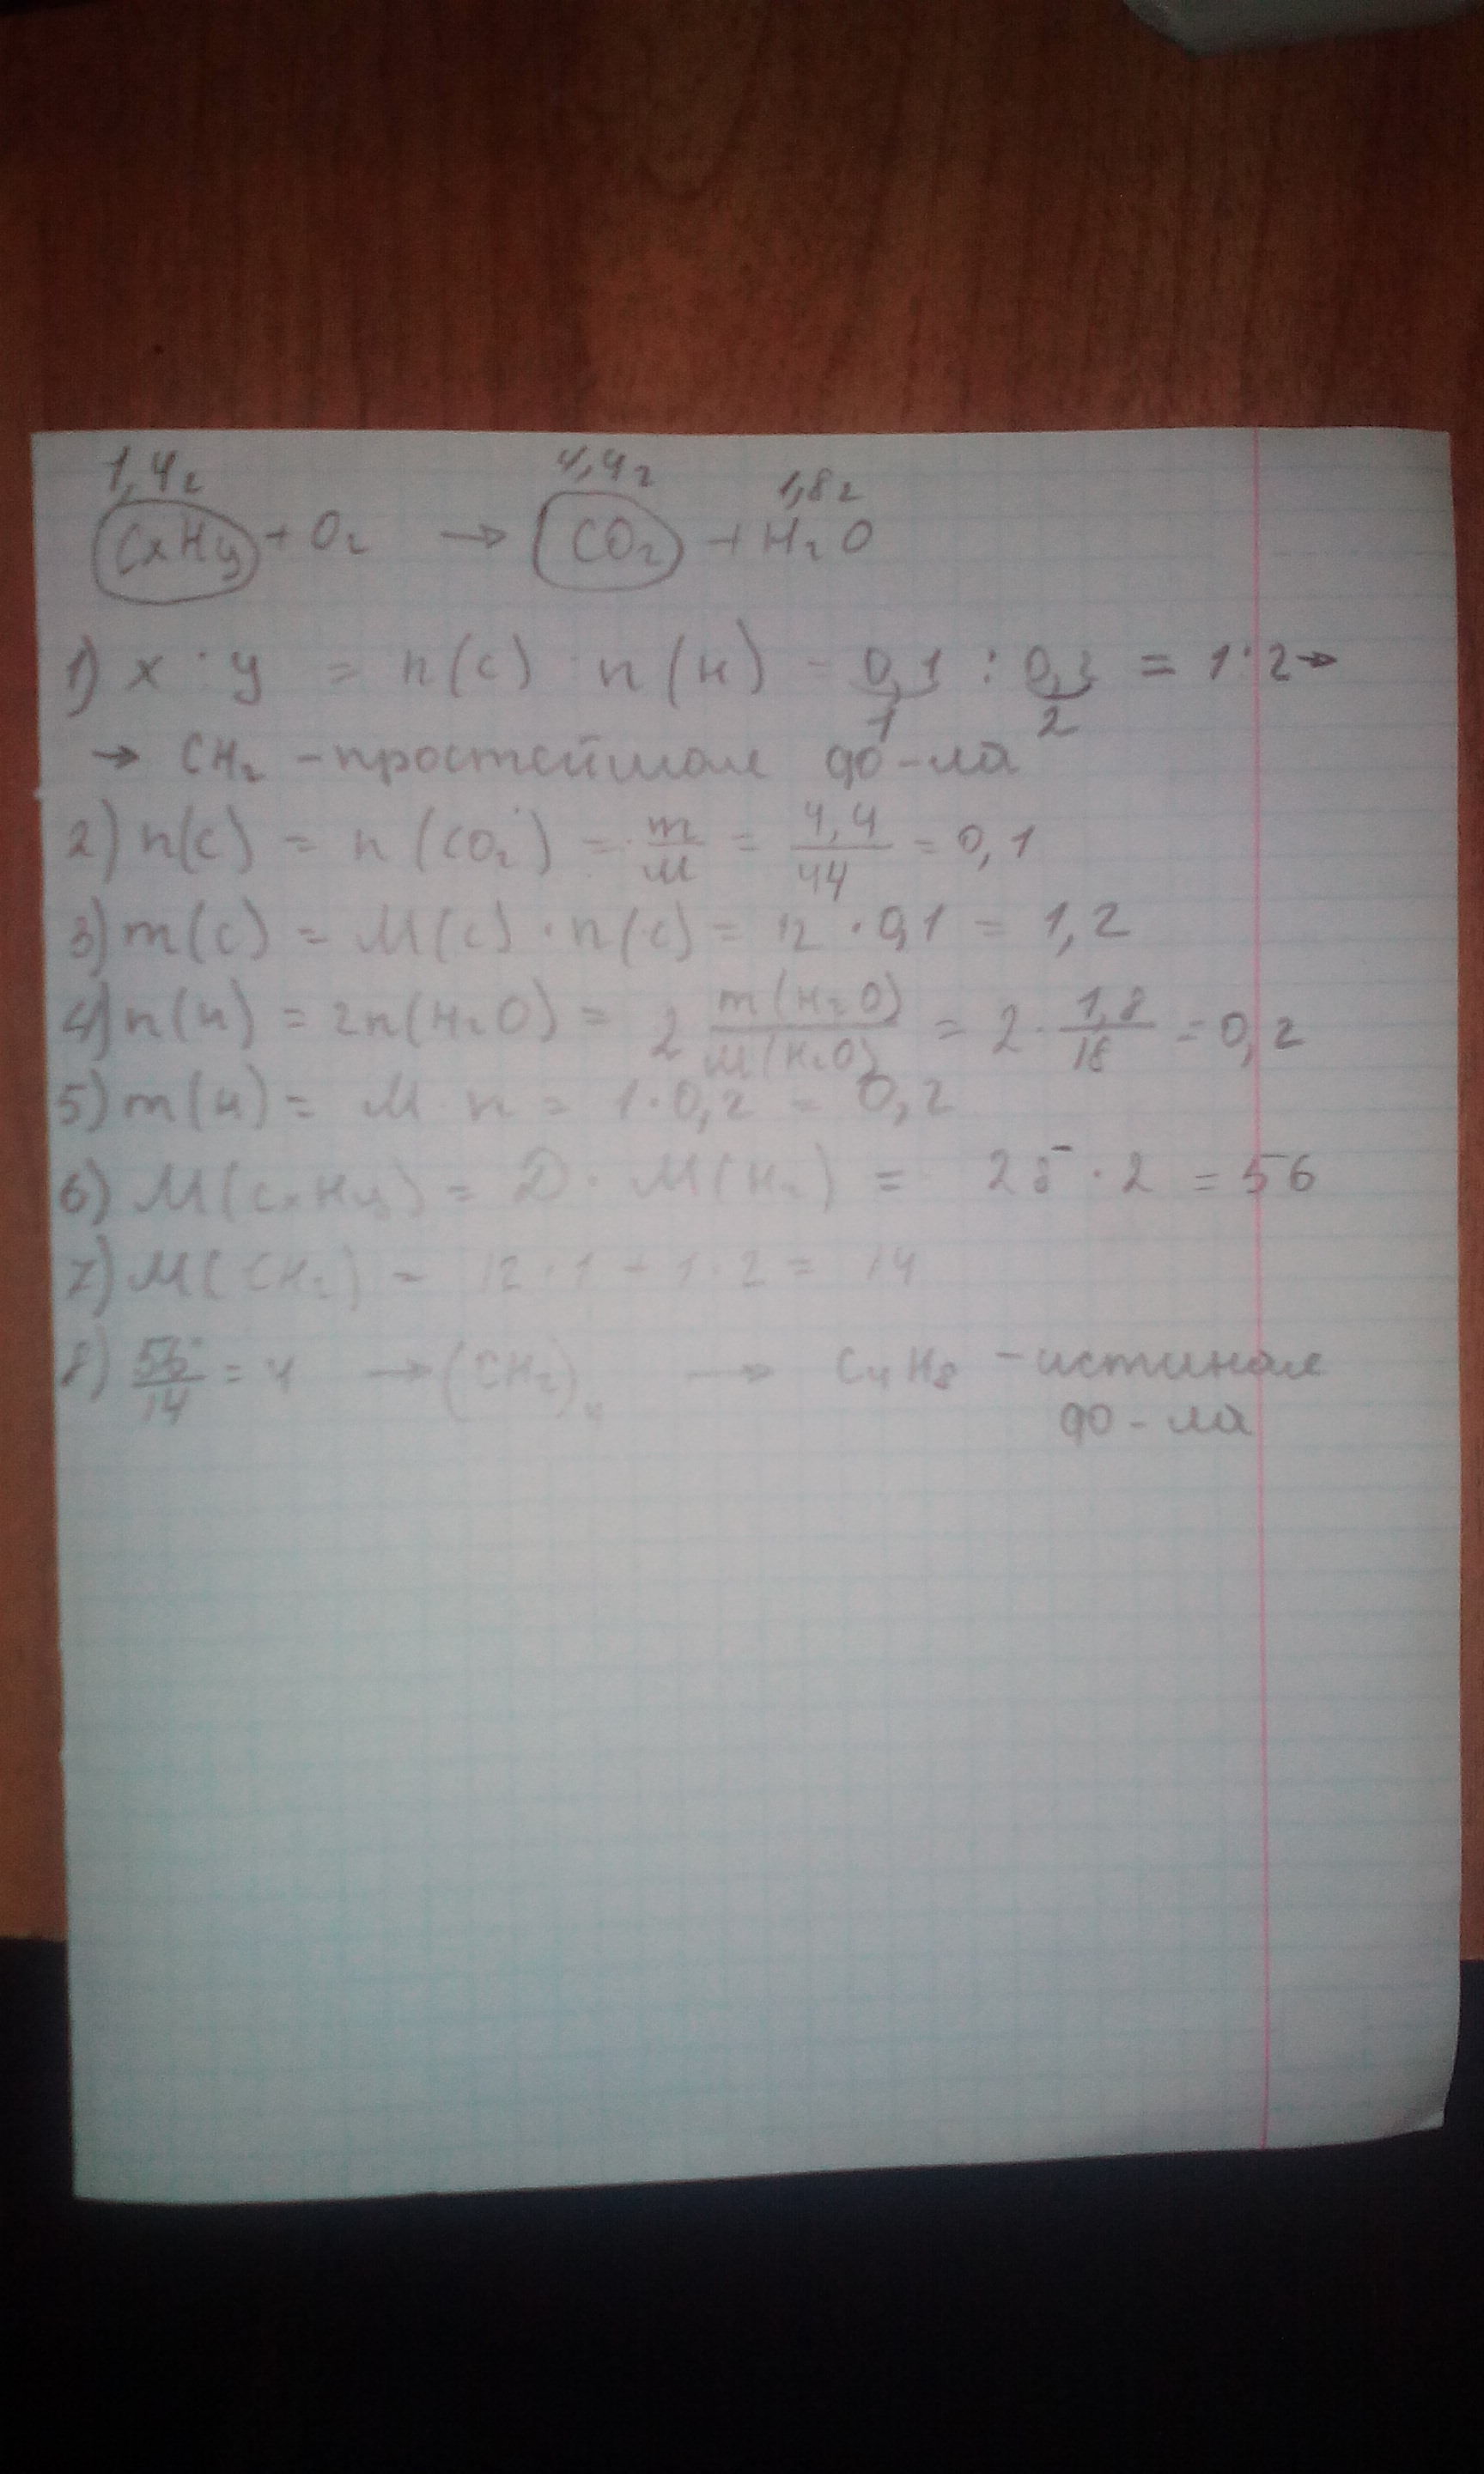 1,4г 4,4г 1,8г
CxHy + O2 → CO2 + H2O
1) x : y = n(C) : n(H) = 0,1 : 0,2 = 1:2 →
1 2
→ CH2 - простейшая ф-ла
2) n(C) = n(CO2) = m/M = 4,4/44 = 0,1
3) m(C) = M(C) · n(C) = 12 · 0,1 = 1,2
4) n(H) = 2n(H2O) = 2 m(H2O)/M(H2O) = 2 · 1,8/18 = 0,2
5) m(H) = M · n = 1 · 0,2 = 0,2
6) M(CxHy) = D · M(H2) = 28 · 2 = 56
7) M(CH2) = 12 · 1 + 1 · 2 = 14
8) 56/14 = 4 → (CH2)4 → C4H8 - истиная
ф-ла